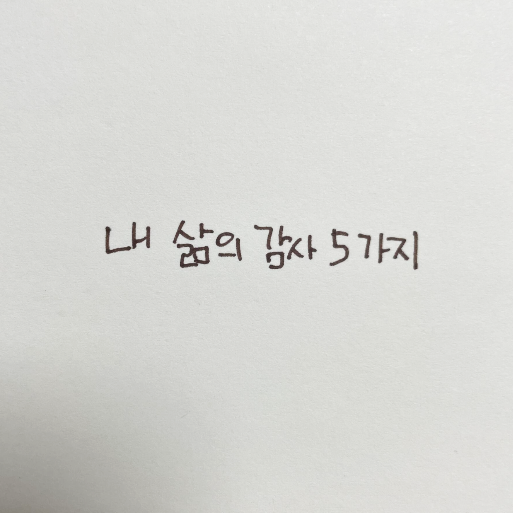 내 삶의 감사 5가지